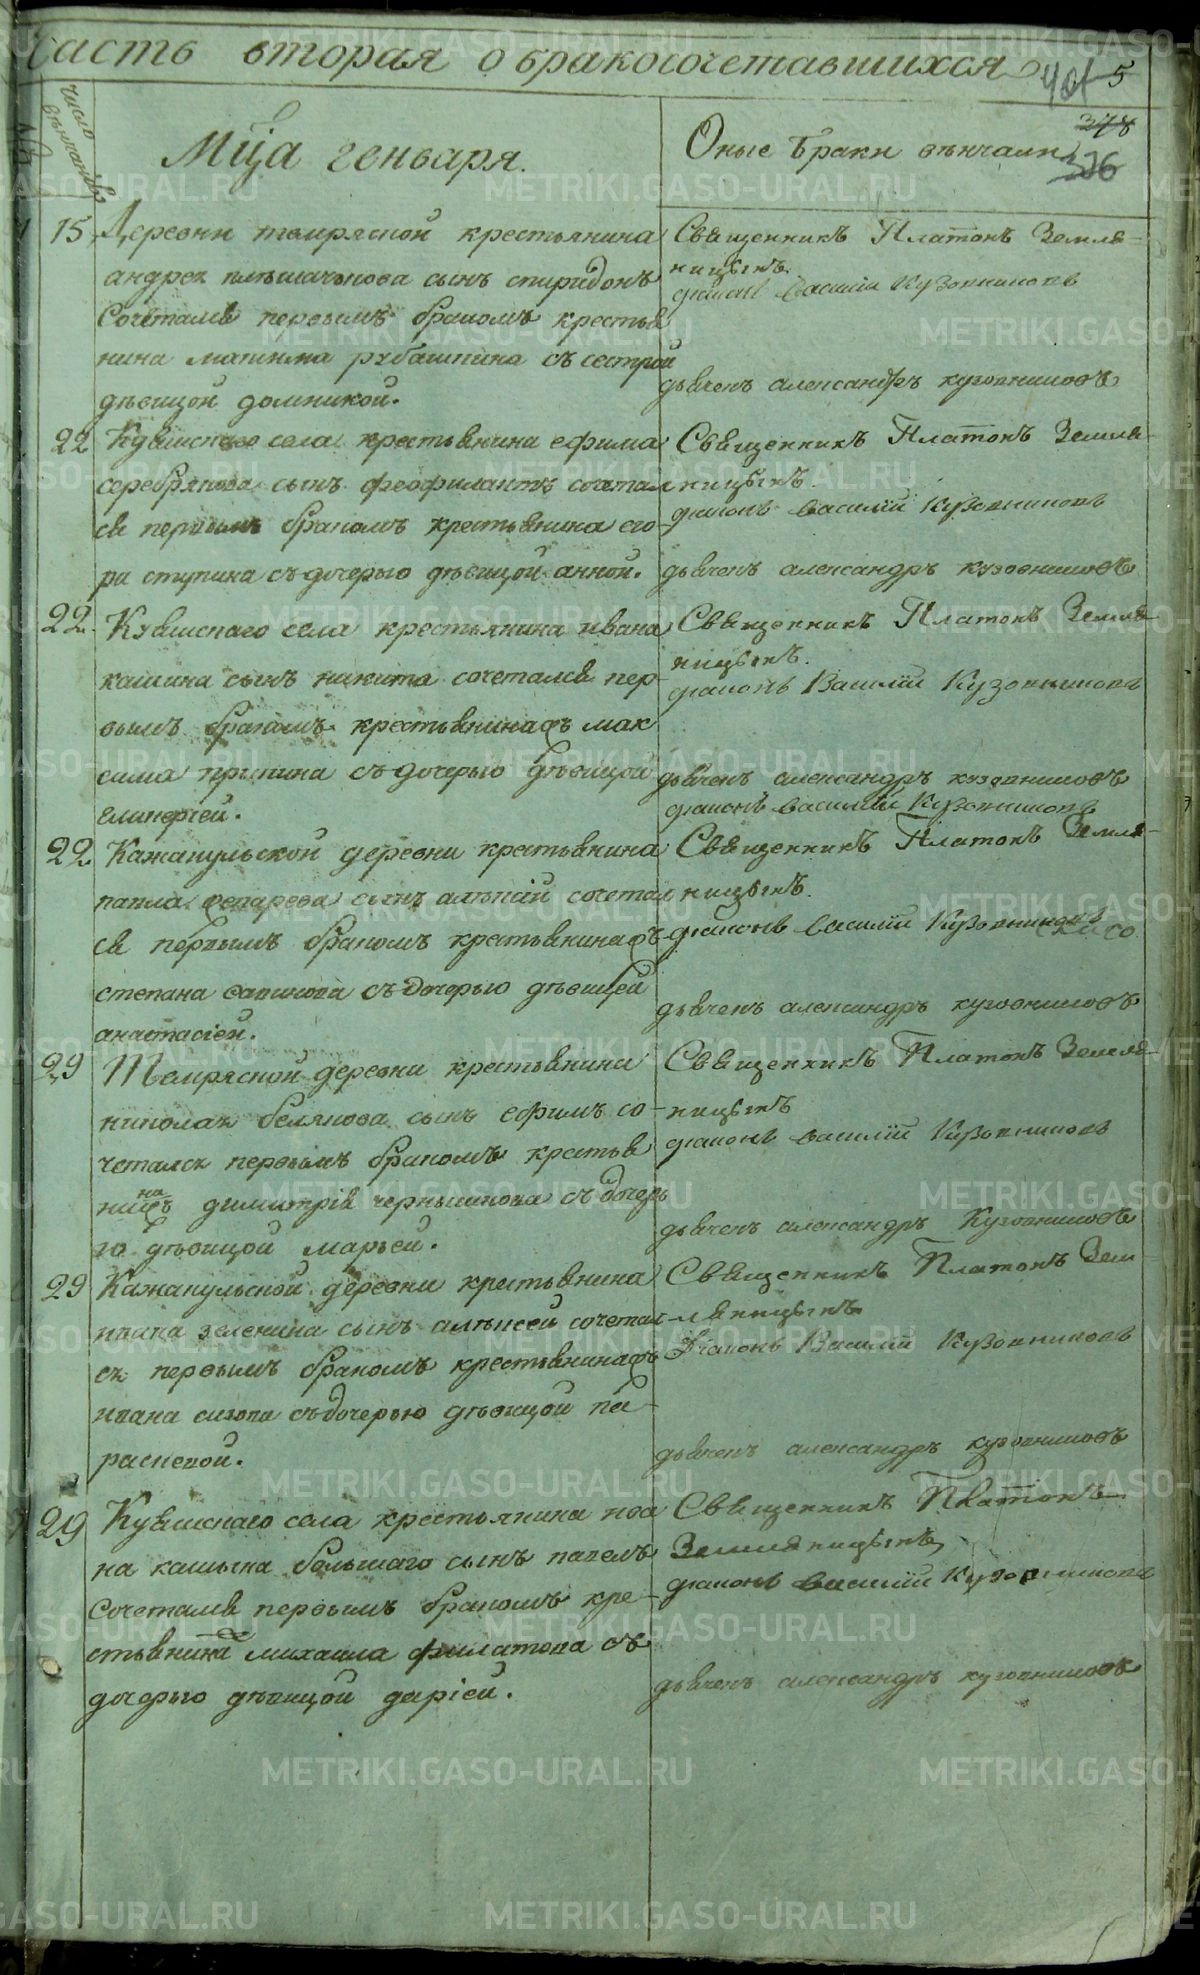 Часть вторая о бракосочетавшихся
401 5
378
376
число венчанiя
Мца генваря.
Оные браки вѣнчали
15 Деревни темрясной крестьянина
андрея сынъ спиридонъ
Сочетался первымъ бракомъ крестья
нина рубашкина съ сестрой
дѣвицой домникой.
Священникъ Платонъ Земля-
ницынъ.
диаконъ василiй Кузовниковъ
дьячекъ александръ кузовниковъ
22 Кувшскаго села крестьянина ефима
серебрякова сынъ феофилактъ сочетал
ся первымъ бракомъ крестьянина его
ра ступина съ дочерью дѣвицой анной.
Священникъ Платонъ Земля-
ницынъ.
диаконъ василiй Кузовниковъ
дьячекъ александръ кузовниковъ
22. Кувшскаго села крестьянина ивана
кашина сынъ никита сочетался пер-
вымъ бракомъ крестьянина мак
сима съ дочерью дѣвицой
гликерiей.
Священникъ Платонъ Земля-
ницынъ.
диаконъ Василiй Кузовниковъ
дьячекъ александръ кузовниковъ
диаконъ василiй Кузовниковъ
22 Кажакульской деревни крестьянина
павла сынъ алексiй сочетал
ся первымъ бракомъ крестьянина
степана съ дочерью дѣвицей
анастасiей.
Священникъ Платонъ Земля-
ницынъ.
диаконъ василiй Кузовниковъ
дьячекъ александръ кузовниковъ
29 Темрясной деревни крестьянина
николая белякова сынъ ефимъ со-
четался первымъ бракомъ крестья
нина димитрiя чернышкова съ дочерь
ю дѣвицой марьей.
Священникъ Платонъ Земля-
ницынъ
диаконъ василiй Кузовниковъ
дьячекъ александръ Кузовниковъ
29 Кажакульской деревни крестьянина
ивана зеленина сынъ алексей сочетал
ся первымъ бракомъ крестьянина
ивана сизова съ дочерью дѣвицой па-
раскевой.
Священникъ Платонъ Зем-
ляницынъ
Дiаконъ Василiй Кузовниковъ
дьячекъ александръ кузовниковъ
29 Кувшскаго села крестьянина иоа
на кашина большаго сынъ павелъ
Сочетался первымъ бракомъ кре-
стьянина михаила филатова съ
дочерью дѣвицой дарiей.
Священникъ Платонъ
Земляницынъ,
диаконъ василiй Кузовниковъ
дьячекъ александръ кузовниковъ
METRIKI.GASO-URAL.RU